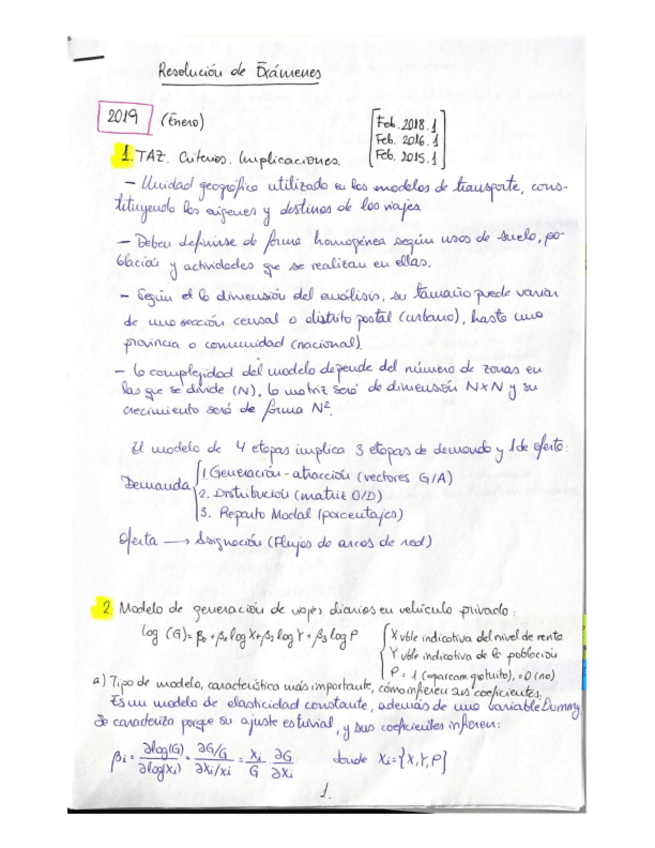 Resolución de Exámenes
2019 (Enero)
Feb. 2018.1
Feb. 2016.1
Feb. 2015.1
1. TAZ. Criterios. Implicaciones.
- Unidad geográfica utilizado en los modelos de transporte, cons-
tituyendo los orígenes y destinos de los viajes
- Deben definirse de forma homogénea según usos de suelo, po-
blación y actividades que se realizan en ellas.
- Según el la dimensión del análisis, su tamaño puede variar
de una sección censal o distrito postal (urbano), hasta una
provincia o comunidad (nacional).
- La complejidad del modelo depende del número de zonas en
las que se divide (N), la matriz será de dimensión N×N y su
crecimiento será de forma N².
El modelo de 4 etapas implica 3 etapas de demanda y 1 de oferta:
Demanda
1. Generación-atracción (vectores G/A)
2. Distribución (matriz O/D)
3. Reparto Modal (porcentajes)
Oferta → Asignación (Flujos de arcos de red)
2. Modelo de generación de viajes diarios en vehículo privado:
log (G) = β₀ + β₁ log X + β₂ log Y + β₃ log P
X vble indicativa del nivel de renta
Y vble indicativa de la población
P = 1 (aparcam gratuito), =0 (no)
a) Tipo de modelo, característica más importante, cómo infieren sus coeficientes.
Es un modelo de elasticidad constante, además de una variable Dummy.
Se caracteriza porque su ajuste es trivial, y sus coeficientes infieren:
βi = ∂log(G)/∂log(Xi) = ∂G/G / ∂Xi/Xi = Xi/G · ∂G/∂Xi donde Xi={X,Y,P}
1.